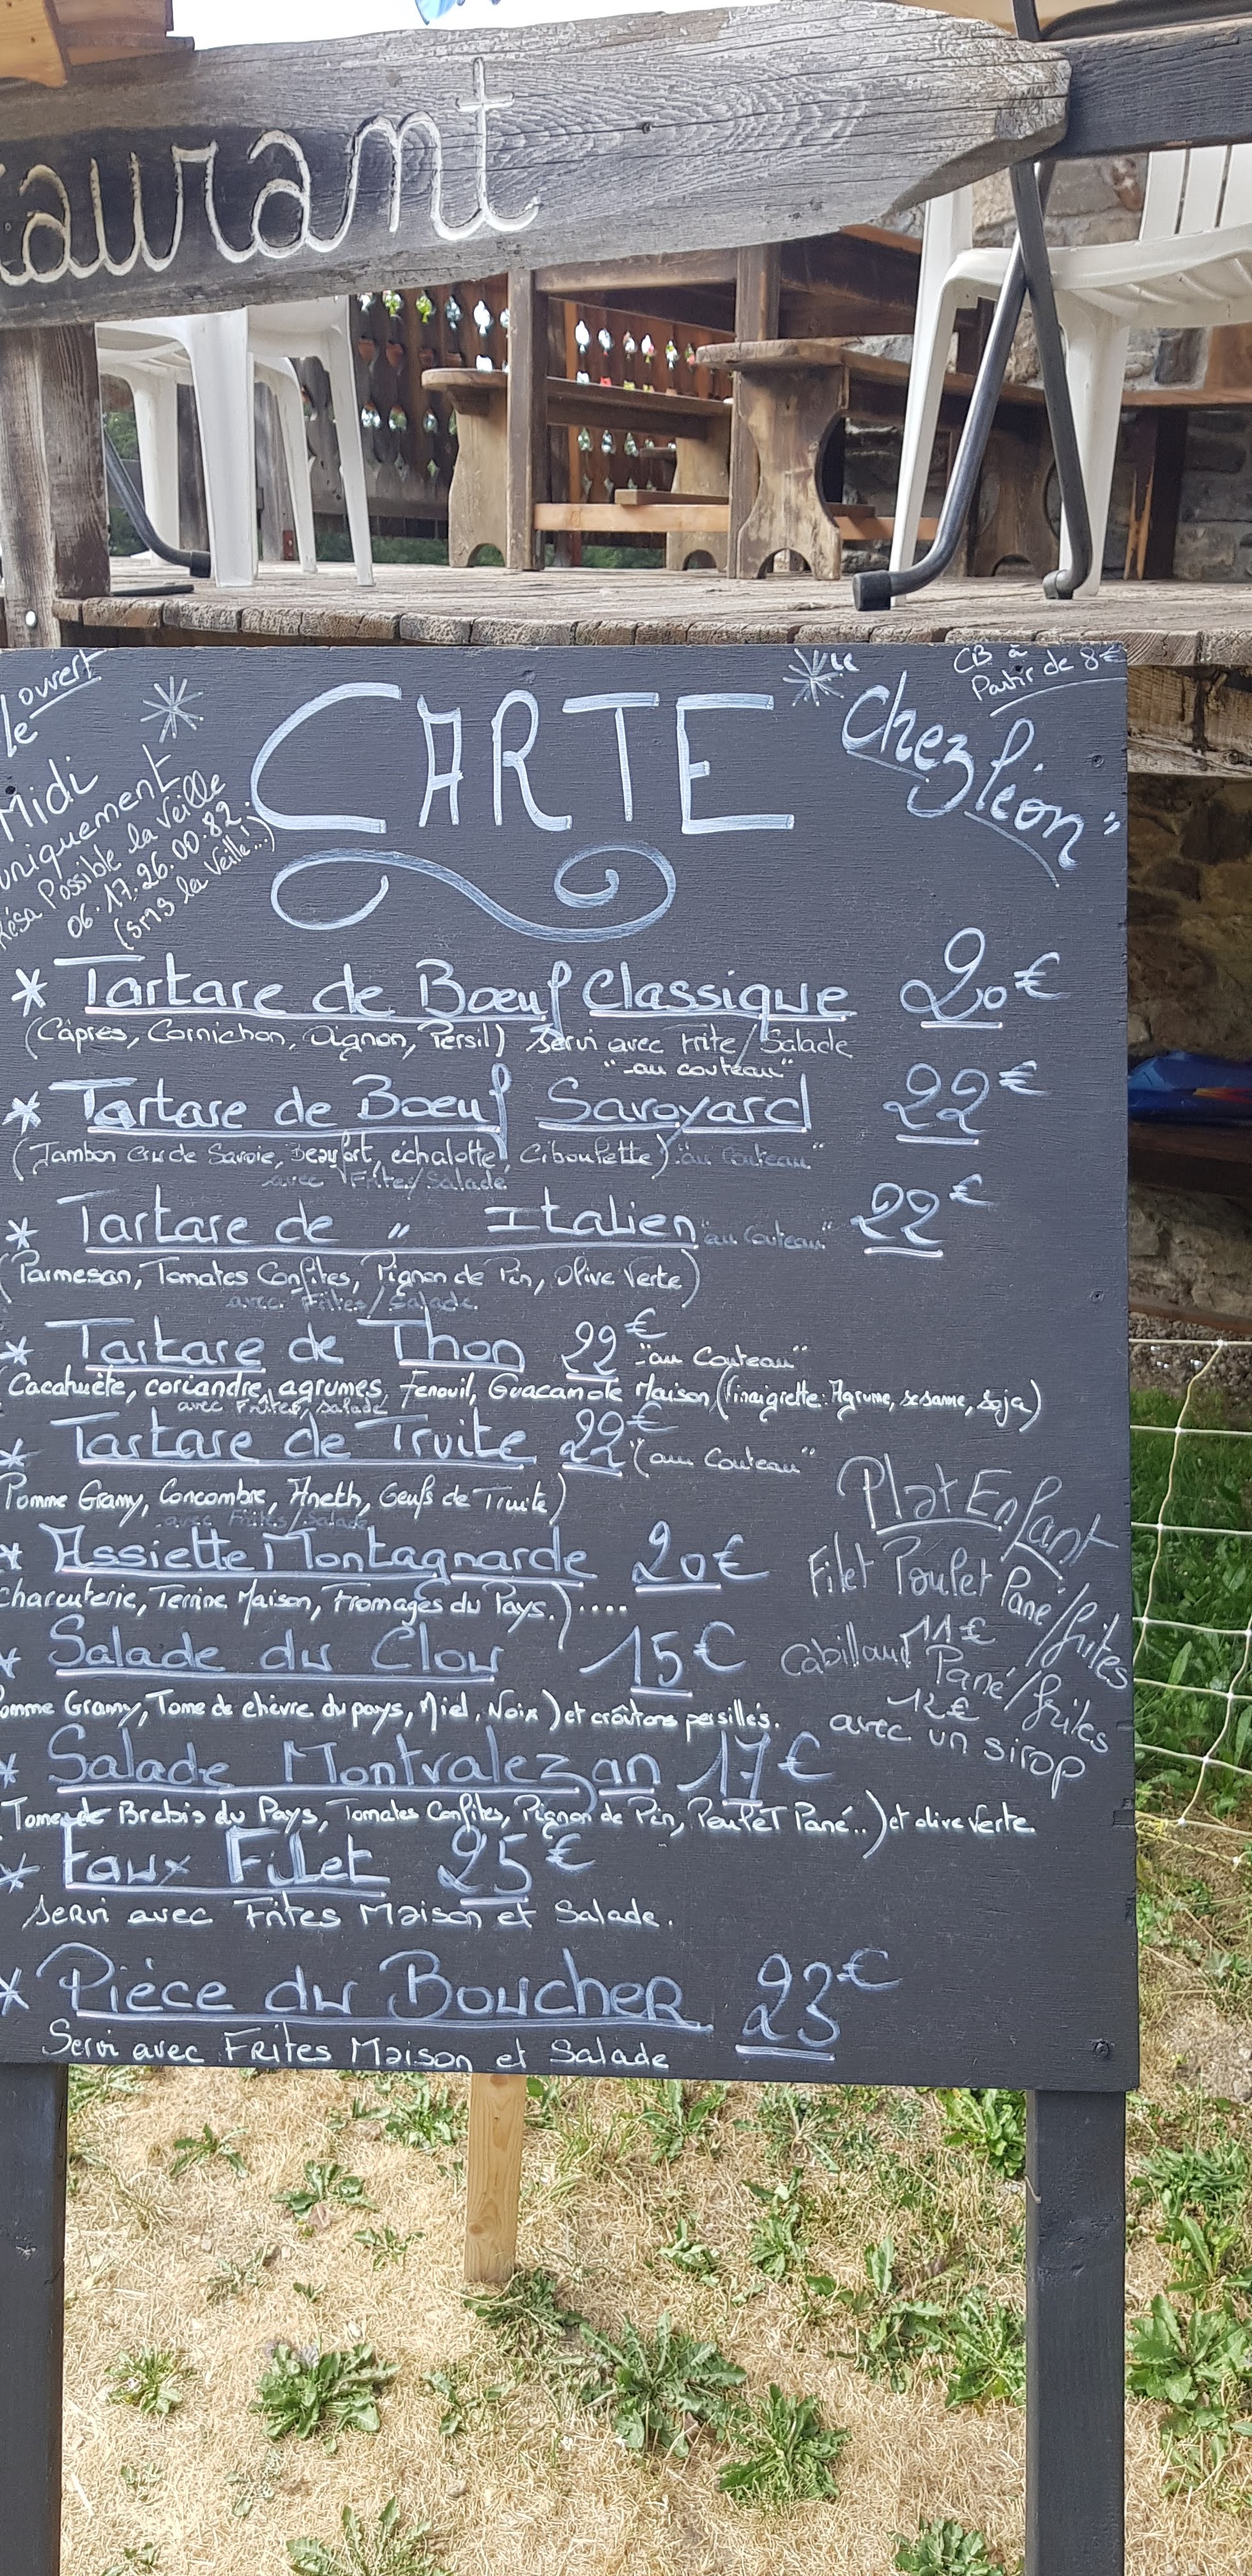 aurant
ouvert
le
Midi
uniquement
Résa Possible la Veille
06.17.26.00.82.
(sms la Veille!...)
CARTE
CB à
Partir de 8€
"Chez léon"
* Tartare de Bœuf Classique 20€
(Câpres, Cornichon, Oignon, Persil) Servi avec Frite/Salade
"au couteau"
* Tartare de Bœuf Savoyard 22€
(Jambon Cru de Savoie, Beaufort, échalotte, Ciboulette) "au Couteau"
avec Frites/Salade
* Tartare de " Italien "au Couteau" 22€
(Parmesan, Tomates Confites, Pignon de Pin, Olive Verte)
avec Frites/Salade
* Tartare de Thon 22€ "au Couteau"
Cacahuète, coriandre, agrumes, Fenouil, Guacamole Maison (Vinaigrette: Agrume, sesame, soja)
avec Frites, salade
* Tartare de Truite 22€ "(au Couteau"
Pomme Granny, Concombre, Aneth, Oeufs de Truite)
avec Frites/Salade
* Assiette Montagnarde 20€
Charcuterie, Terrine Maison, Fromages du Pays.)....
* Salade du Clou 15€
omme Granny, Tome de chèvre du pays, Miel, Noix) et croûtons persillés.
* Salade Montvalezan 17€
Tome de Brebis du Pays, Tomates Confites, Pignon de Pin, Poulet Pané..) et olive verte
* Faux Filet 25€
Servi avec Frites Maison et Salade.
* Pièce du Boucher 23€
Servi avec Frites Maison et Salade
Plat Enfant
Filet Poulet Pané/frites
11€
Cabillaud Pané/frites
12€
avec un sirop